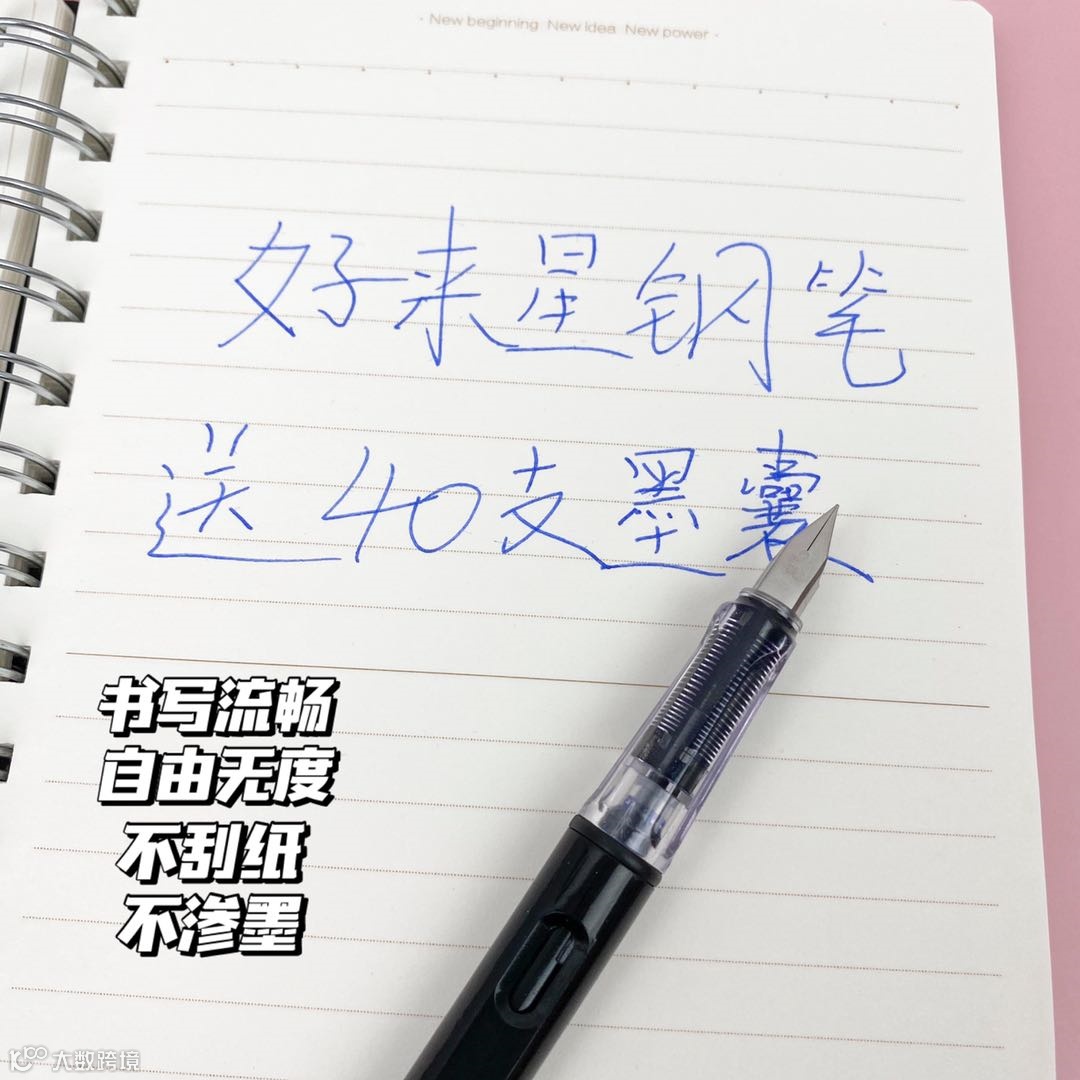 · New beginning New idea New power ·
好来星钢笔
送40支墨囊
书写流畅
自由无度
不刮纸
不渗墨
大数跨境